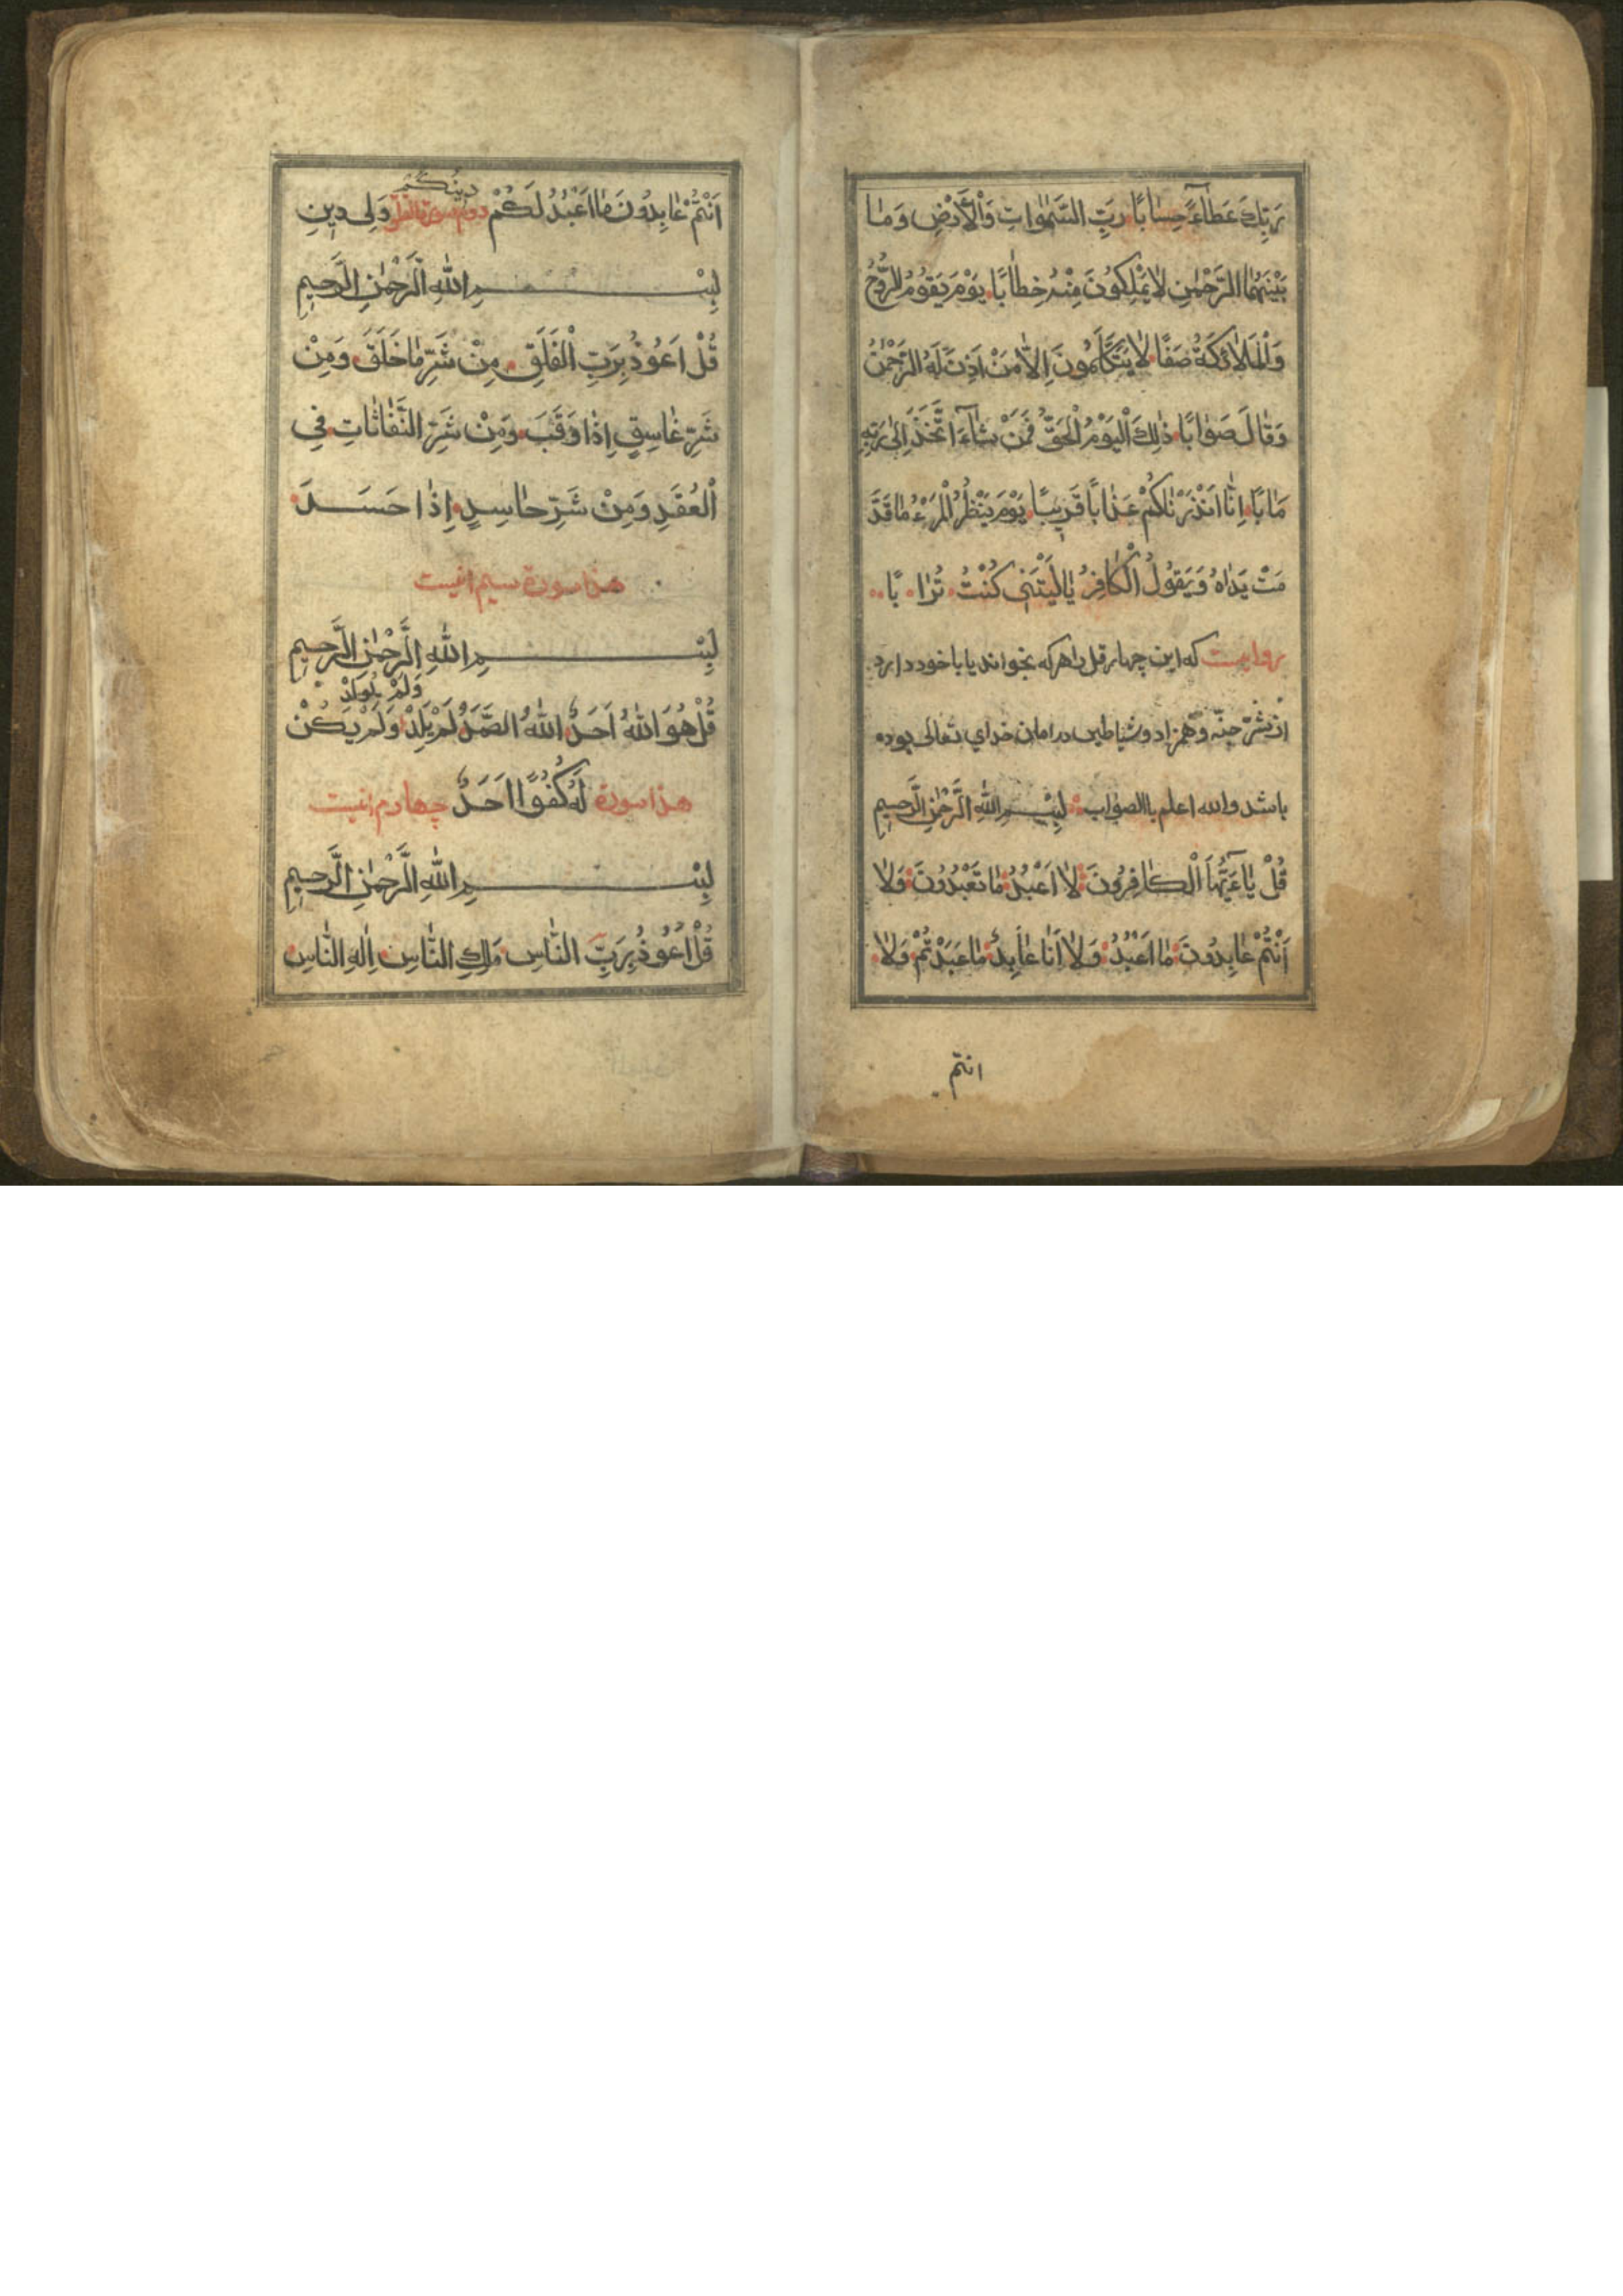 رَبِّكَ عَطَاءً حِسَابًا رَبِّ السَّمٰوَاتِ وَالْأَرْضِ وَمَا
بَيْنَهُمَا الرَّحْمٰنِ لَا يَمْلِكُونَ مِنْهُ خِطَابًا يَوْمَ يَقُومُ الرُّوحُ
وَالْمَلَائِكَةُ صَفًّا لَا يَتَكَلَّمُونَ إِلَّا مَنْ أَذِنَ لَهُ الرَّحْمٰنُ
وَقَالَ صَوَابًا ذٰلِكَ الْيَوْمُ الْحَقُّ فَمَنْ شَاءَ اتَّخَذَ إِلٰى رَبِّهِ
مَاٰبًا اِنَّا اَنْذَرْنَاكُمْ عَذَابًا قَرِيبًا يَوْمَ يَنْظُرُ الْمَرْءُ مَا قَدَّ
مَتْ يَدَاهُ وَيَقُولُ الْكَافِرُ يَا لَيْتَنِي كُنْتُ تُرَابًا
روایست که این چهار قل را هر که بخواند یا با خود دارد
از شرّ جنّه و همزاد و شیاطین در امان خدای تعالی بوده
باشد والله اعلم باالصواب بِسْمِ اللهِ الرَّحْمٰنِ الرَّحِيمِ
قُلْ يَاءَيُّهَا الْكَافِرُونَ لَا اَعْبُدُ مَا تَعْبُدُونَ وَلَا
اَنْتُمْ عَابِدُونَ مَا اَعْبُدُ وَلَا اَنَا عَابِدٌ مَا عَبَدْتُمْ وَلَا
انتم
اَنْتُمْ عَابِدُونَ مَا اَعْبُدُ لَكُمْ دِينُكُمْ دوم سورة الفلق وَلِيَ دِينِ
بِسْمِ اللهِ الرَّحْمٰنِ الرَّحِيمِ
قُلْ اَعُوذُ بِرَبِّ الْفَلَقِ مِنْ شَرِّ مَا خَلَقَ وَمِنْ
شَرِّ غَاسِقٍ اِذَا وَقَبَ وَمِنْ شَرِّ النَّفَّاثَاتِ فِي
الْعُقَدِ وَمِنْ شَرِّ حَاسِدٍ اِذَا حَسَدَ
هذا سورة سیم انیست
بِسْمِ اللهِ الرَّحْمٰنِ الرَّحِيمِ
قُلْ هُوَ اللهُ اَحَدٌ اللهُ الصَّمَدُ لَمْ يَلِدْ وَلَمْ يُولَدْ وَلَمْ يَكُنْ
هذا سورة لَهُ كُفُوًا اَحَدٌ چهارم انیست
بِسْمِ اللهِ الرَّحْمٰنِ الرَّحِيمِ
قُلْ اَعُوذُ بِرَبِّ النَّاسِ مَلِكِ النَّاسِ اِلٰهِ النَّاسِ